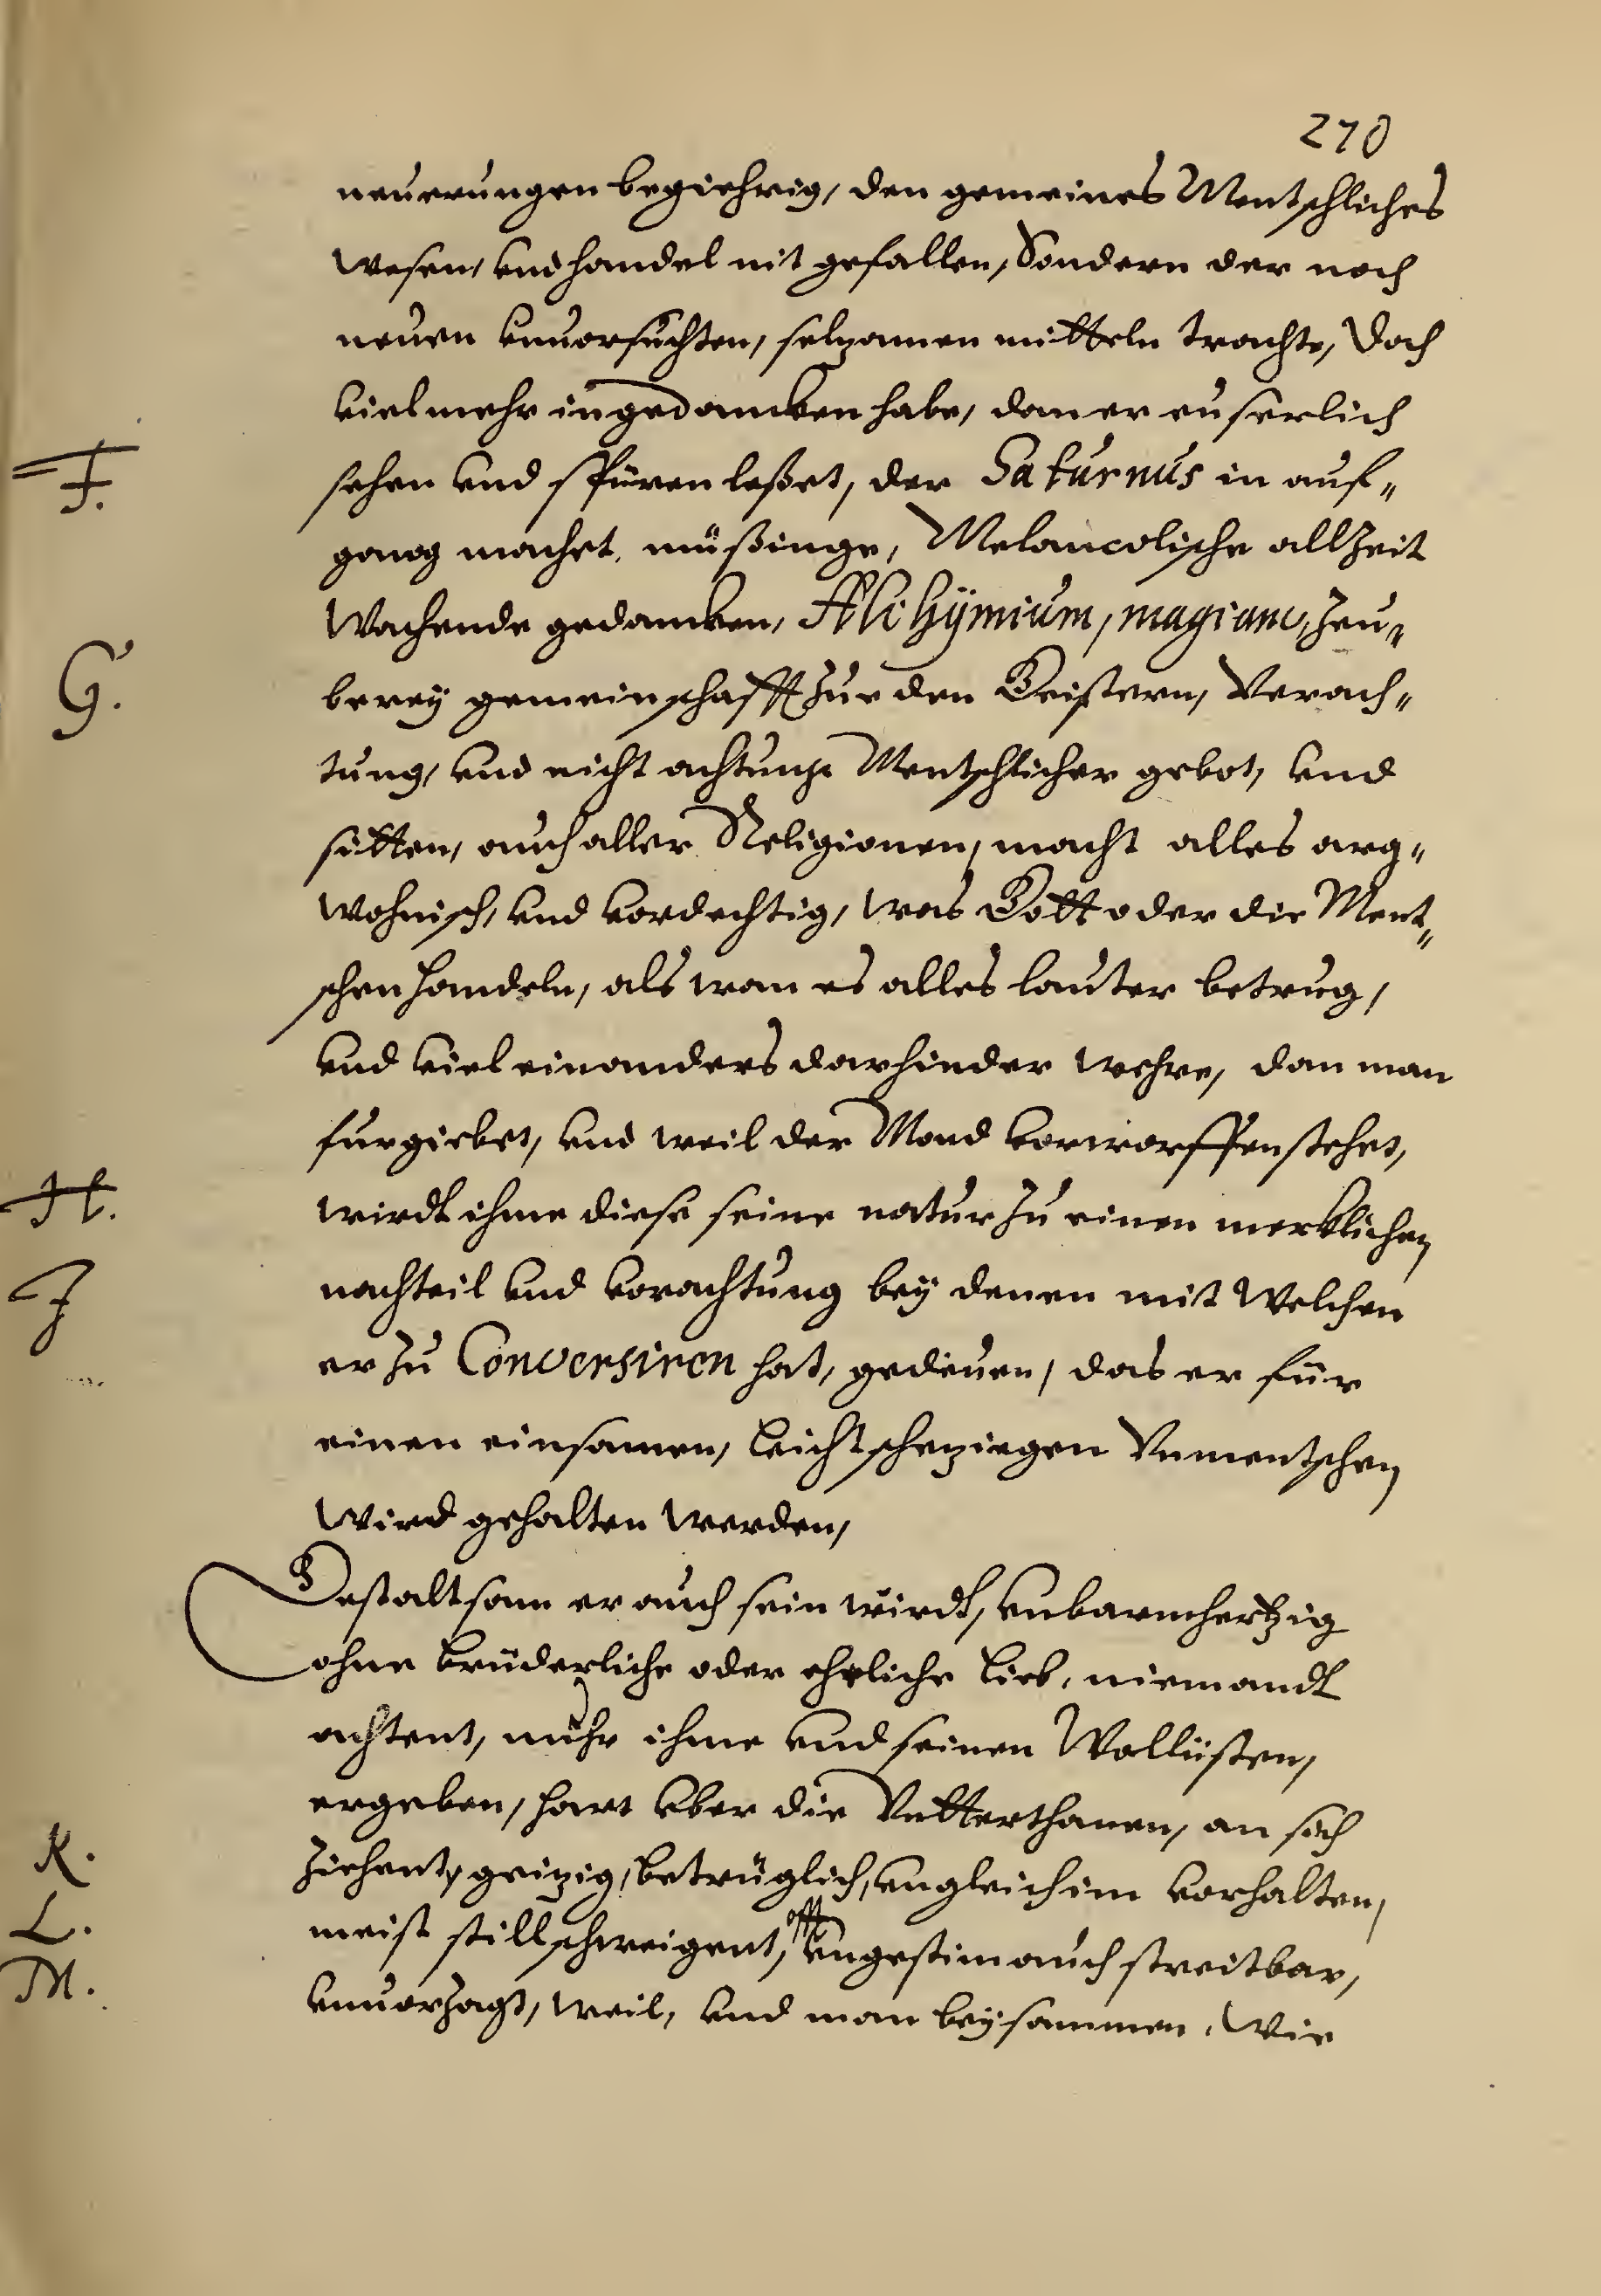 270
neuerungen begiehrig, den gemeines Mentschliches
wesen, und handel nit gefallen, Sondern der nach
neuen unuorsuchten, selzamen mitteln trachte, Doch
viel mehr in gedancken habe, dan er euserlich
sehen und spüren leßet, der Saturnus in auf„
F.
gang machet, müßinge, Melancolische allzeit
Wachende gedancken, Alchÿmium, magiam, Zeu„
G.
bereÿ gemeinschafft zue den Geistern, Verach„
tung, und nicht achtunge Mentschlicher gebot, und
sitten, auch aller Religionen, macht alles arg„
wohnisch, und vordechtig, was Gott oder die Ment„
schen handeln, als wan es alles lauter betrug,
und viel ein anders darhinder wehre, dan man
furgiebet, und weil der Mond vorworffen stehet,
H.
wirdt ihme diese seine natur zu einen mercklichen
J
nachteil und vorachtung beÿ denen mit Welchen
er zu Conversiren hat, gedeuen, das er für
einen einsamen, leichtscheziegen Vnmentschen
Wird gehalten werden,
Gestaltsam er auch sein wirdt, unbarmhertzig
ohne brüderliche oder eheliche lieb, niemandt
achtent, nuhr ihme und seinen Wollüsten,
ergeben, hart über die Vntterthanen, an sich
K.
ziehent, geizig, betrüglich, ungleich im vorhalten,
L.
meist stillschweigent, offt ungestim auch streitbar,
M.
unuorzagt, weil, und man beÿsammen, Wie